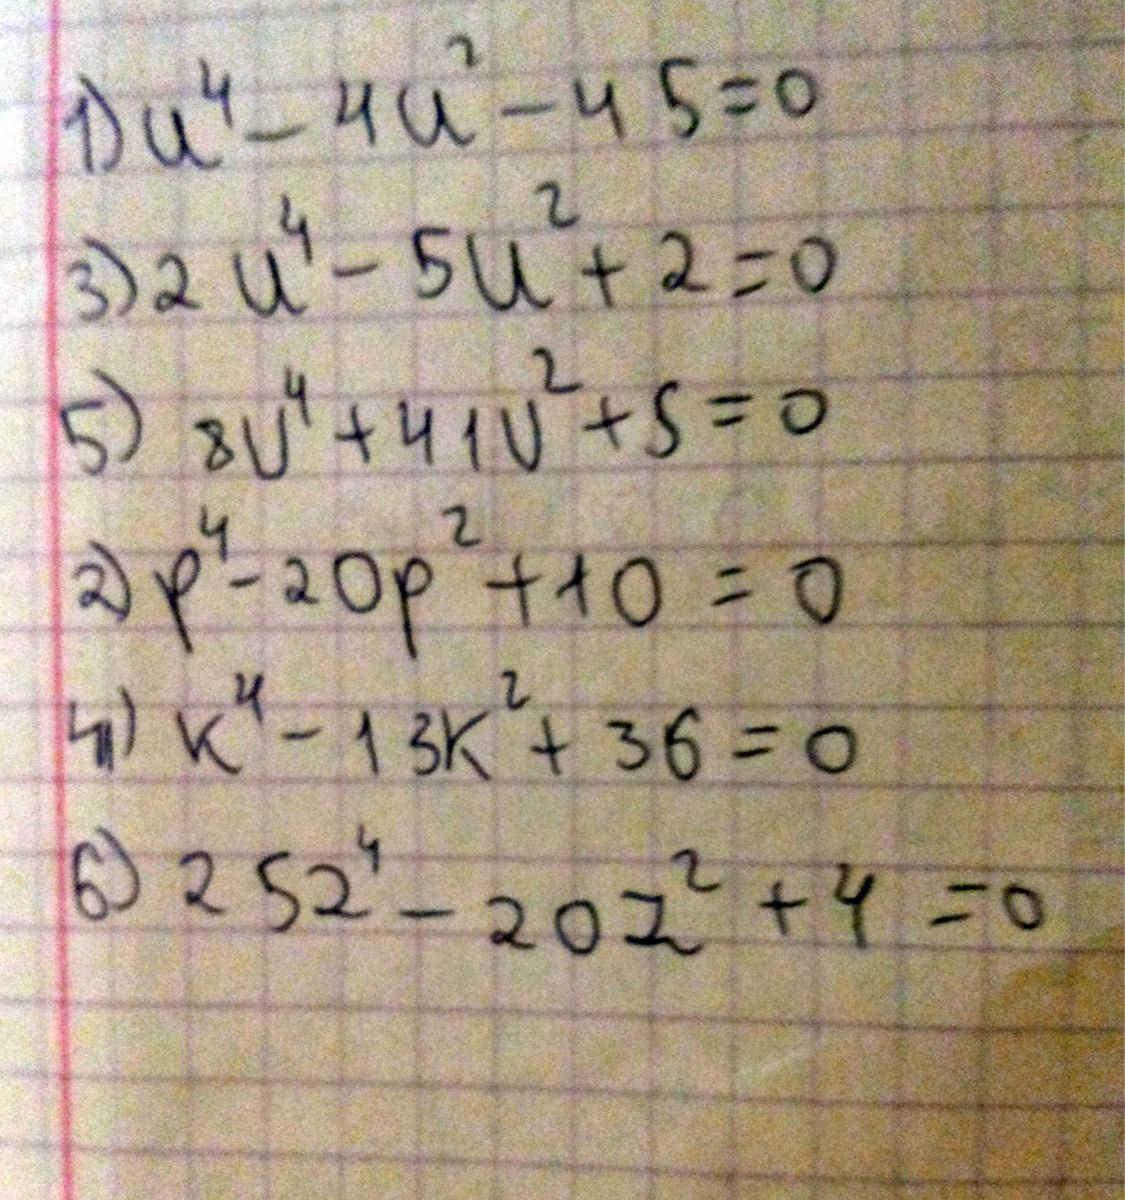 1) u⁴ - 4u² - 45 = 0
3) 2u⁴ - 5u² + 2 = 0
5) 8U⁴ + 41U² + 5 = 0
2) p⁴ - 20p² + 10 = 0
4) k⁴ - 13k² + 36 = 0
6) 25z⁴ - 20z² + 4 = 0